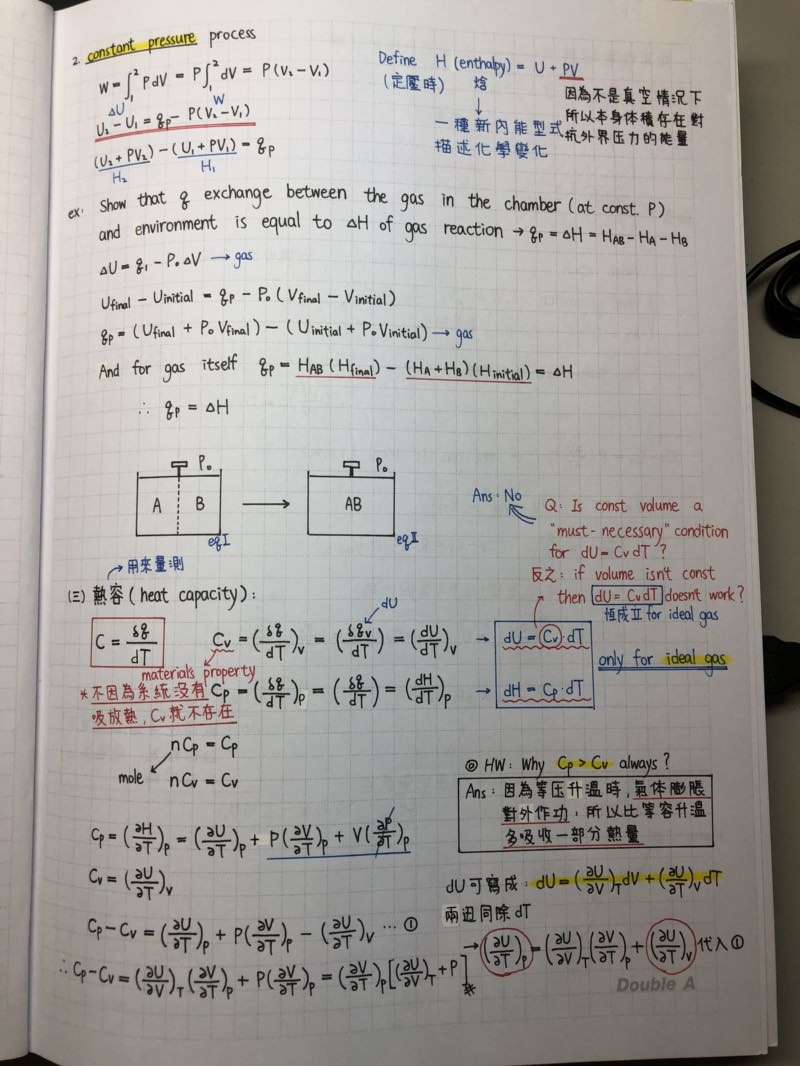 2. constant pressure process
W = ∫₁² PdV = P∫₁² dV = P(V₂ - V₁)
ΔU W
U₂ - U₁ = q_p - P(V₂ - V₁)
(U₂ + PV₂) - (U₁ + PV₁) = q_p
H₂ H₁
Define H (enthalpy) = U + PV
(定壓時) 焓
↓
一種新內能型式
描述化學變化
因為不是真空情況下
所以本身体積存在對
抗外界压力的能量
ex. Show that q exchange between the gas in the chamber (at const. P)
and environment is equal to ΔH of gas reaction → q_p = ΔH = H_AB - H_A - H_B
ΔU = q₁ - P₀ΔV → gas
U_final - U_initial = q_p - P₀(V_final - V_initial)
q_p = (U_final + P₀V_final) - (U_initial + P₀V_initial) → gas
And for gas itself q_p = H_AB (H_final) - (H_A + H_B)(H_initial) = ΔH
∴ q_p = ΔH
P₀
A B
eq I
→
P₀
AB
eq II
Ans: No
Q: Is const volume a
"must-necessary" condition
for dU = CvdT ?
反之: if volume isn't const
then dU = CvdT doesn't work?
恆成立 for ideal gas
only for ideal gas
→ 用來量測
(三) 熱容 (heat capacity):
C = δq/dT
Cv = (δq/dT)_v = (δq_v/dT) = (dU/dT)_v → dU = Cv·dT
dU
material's property
*不因為系統沒有
吸放熱, Cv就不存在
Cp = (δq/dT)_p = (δq/dT) = (dH/dT)_p → dH = Cp·dT
nCp = Cp
mole nCv = Cv
◎ HW: Why Cp > Cv always ?
Ans: 因為等压升溫時, 氣体膨脹
對外作功, 所以比等容升溫
多吸收一部分熱量
Cp = (∂H/∂T)_p = (∂U/∂T)_p + P(∂V/∂T)_p + V(∂P/∂T)_p
Cv = (∂U/∂T)_v
Cp - Cv = (∂U/∂T)_p + P(∂V/∂T)_p - (∂U/∂T)_v ... ①
∴ Cp - Cv = (∂U/∂V)_T (∂V/∂T)_p + P(∂V/∂T)_p = (∂V/∂T)_p [(∂U/∂V)_T + P]
dU可寫成: dU = (∂U/∂V)_T dV + (∂U/∂T)_v dT
兩边同除dT
→ (∂U/∂T)_p = (∂U/∂V)_T (∂V/∂T)_p + (∂U/∂T)_v 代入①
Double A